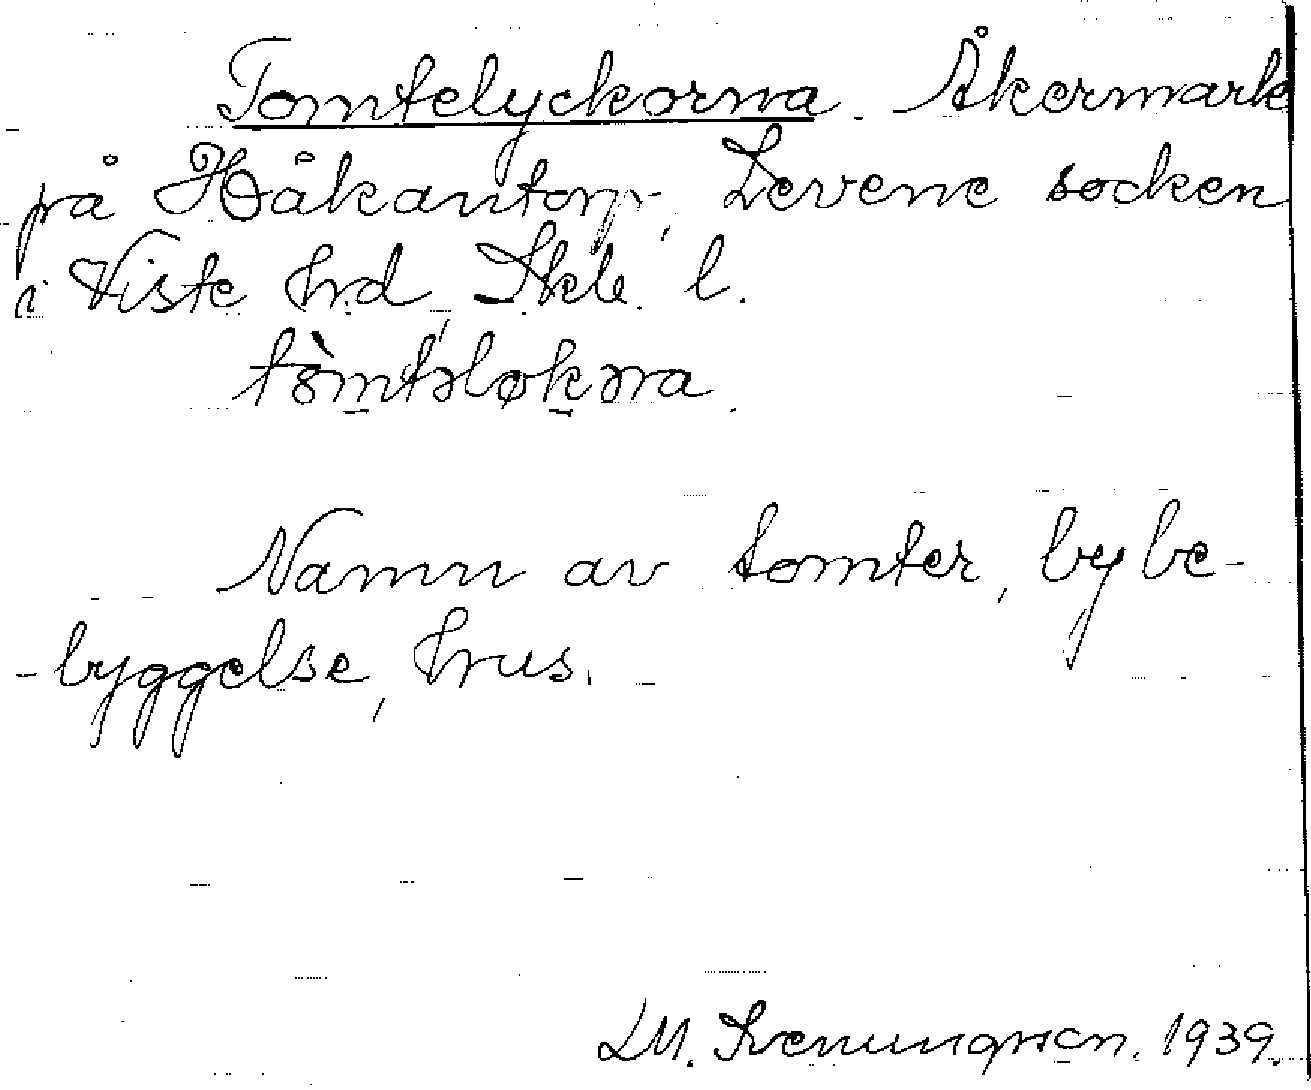 Tomtelyckorna. Åkermark
på Håkantorp, Levene socken
i Viste hrd, Skb. l.
tòmtələkəra.
Namn av tomter, by be-
-byggelse, hus.
LM. Svenungsson. 1939.